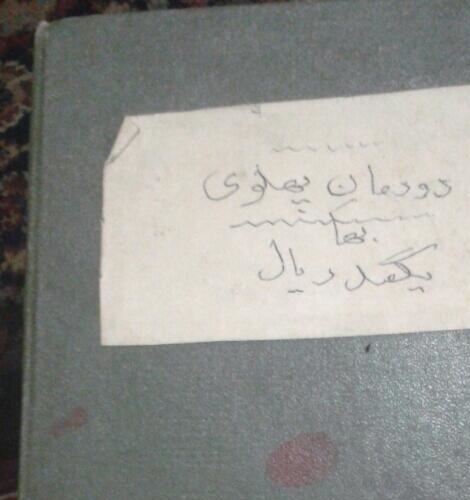 دودمان پهلوی
بها
یکصد ریال